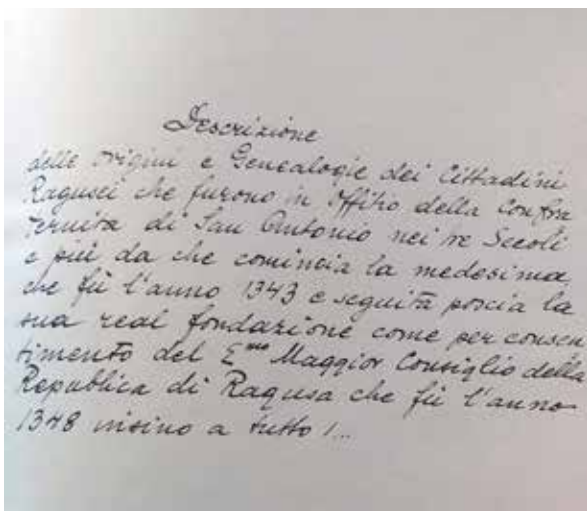 Descrizione
delle origini e Genealogie dei Cittadini
Ragusei che furono in Offizo della Confra
ternita di San Antonio nei tre Secoli
e più da che comincia la medesima,
che fù l'anno 1343 e seguita poscia la
sua real fondazione come per consen
timento del E.mo Maggior Consiglio della
Republica di Ragusa che fù l'anno
1348 insino a tutto 1...